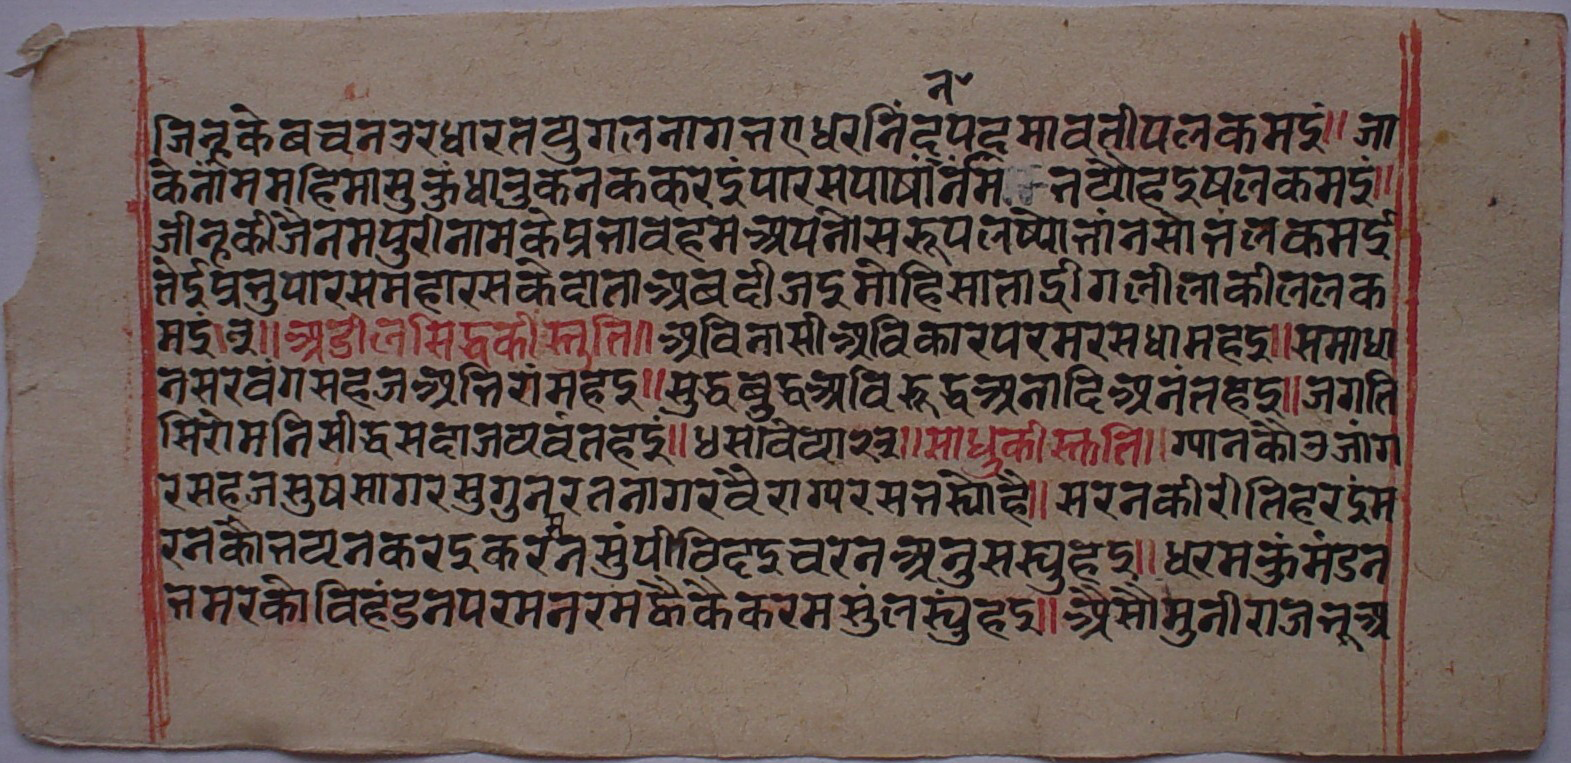 न
जिन्हके बचन उर धारत युगल नाग नए धरनिंद पदमावती पलकमइं॥ जा
के नांम महिमा सु कुंधातु कनक करइं पारस पाषांन नांमि नयो हइ षलकमइं॥
जीन्हकी जैनमपुरी नाम के प्रभाव हम अपनौ सरूप लष्यो भांन सौ भंलकमइं
तेई प्रभु पारस महारस के दाता अब दीजइ मोहि साता द्रीग लीला की ललक
मइं ३॥ अडील सिद्ध की स्तुति॥ अविनासी अविकार परम रस धाम हइ॥ समाधा
न सरवंग सहज अभिरांम हइ॥ सुद्ध बुद्ध अविरूद्ध अनादि अनंत हइ॥ जगति
सिरोमनि सीद्ध सदा जयवंत हइं॥ ४ सवैया ३१॥ साधु की स्तुति॥ ग्यान कौ उजाग
र सहज सुष सागर सुगुन रतनागर वैराग्य रस भस्यो है॥ सरन की रीति हरइं म
रन कौ भय न करइ करन सुं पीवि दइ चरन अनुसस्यु हइ॥ धरम कुं मंडन
भमर को विहंडन परम नरम कै कै करम सुं लस्युं हइ॥ अैसौ मुनीराज भू अ